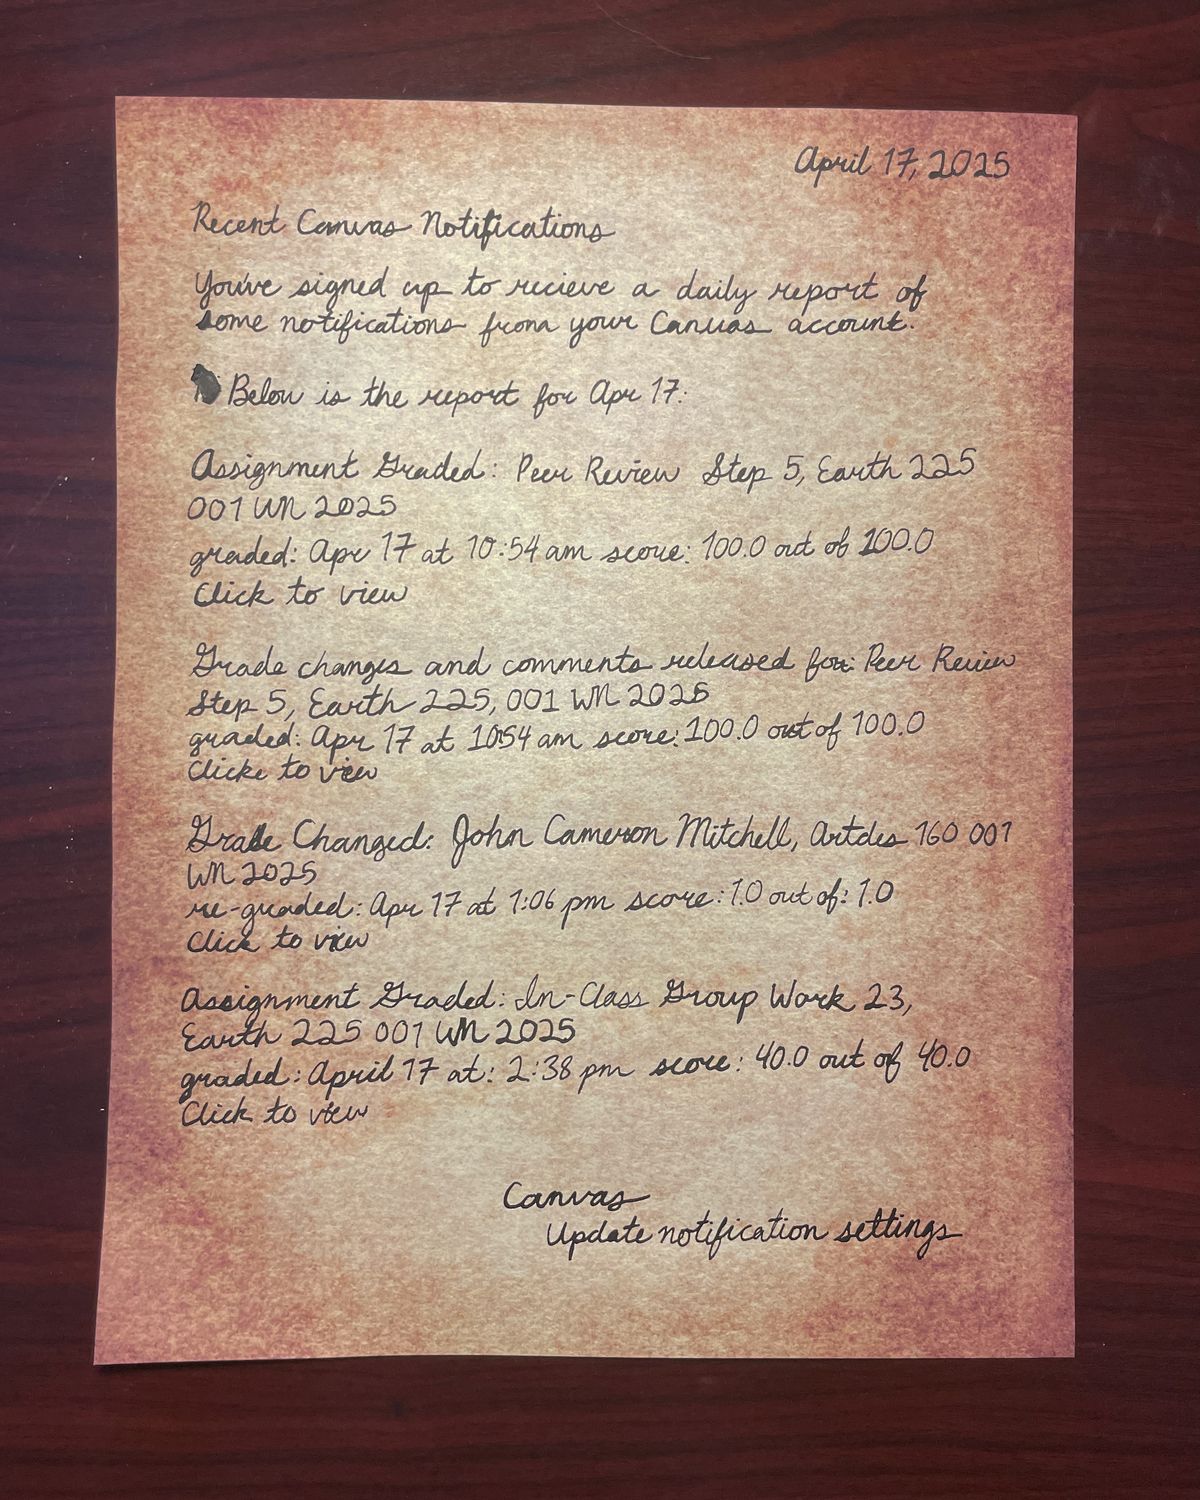 April 17, 2025
Recent Canvas Notifications
You've signed up to recieve a daily report of
some notifications from your Canvas account.
Below is the report for Apr 17:
Assignment Graded: Peer Review Step 5, Earth 225
001 WN 2025
graded: Apr 17 at 10:54 am score: 100.0 out of 100.0
Click to view
Grade changes and comments released for: Peer Review
Step 5, Earth 225, 001 WN 2025
graded: Apr 17 at 1054 am score: 100.0 out of 100.0
Clicke to view
Grade Changed: John Cameron Mitchell, Artdes 160 001
WN 2025
re-graded: Apr 17 at 1:06 pm score: 1.0 out of: 1.0
Click to view
Assignment Graded: In-Class Group Work 23,
Earth 225 001 WN 2025
graded: April 17 at: 2:38 pm score: 40.0 out of 40.0
Click to view
Canvas
Update notification settings